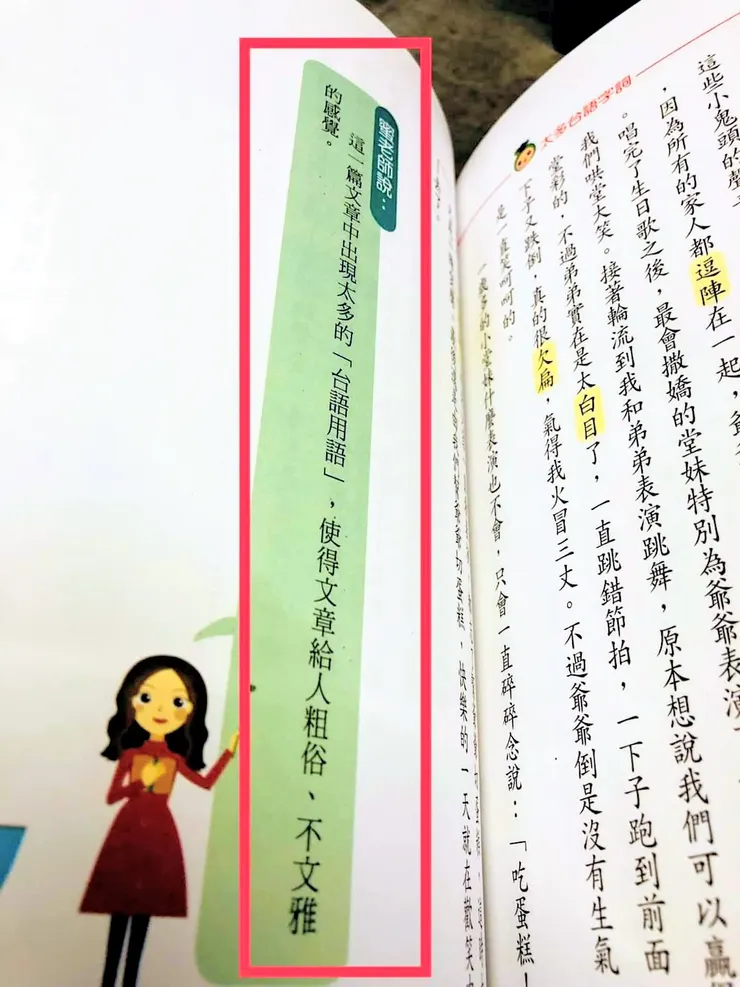 太多台語字詞
這些小鬼頭的聲
，因為所有的家人都逗陣在一起，爺
。唱完了生日歌之後，最會撒嬌的堂妹特別為爺爺表演
我們哄堂大笑。接著輪流到我和弟弟表演跳舞，原本想說我們可以贏
堂彩的，不過弟弟實在是太白目了，一直跳錯節拍，一下子跑到前面
下子又跌倒，真的很欠扁，氣得我火冒三丈。不過爺爺倒是沒有生氣
是一直笑呵呵的。
一歲多的小堂妹什麼表演也不會，只會一直碎碎念說：「吃蛋糕！
切蛋糕，快樂的一天就在歡笑
蜜老師說：
這一篇文章中出現太多的「台語用語」，使得文章給人粗俗、不文雅
的感覺。